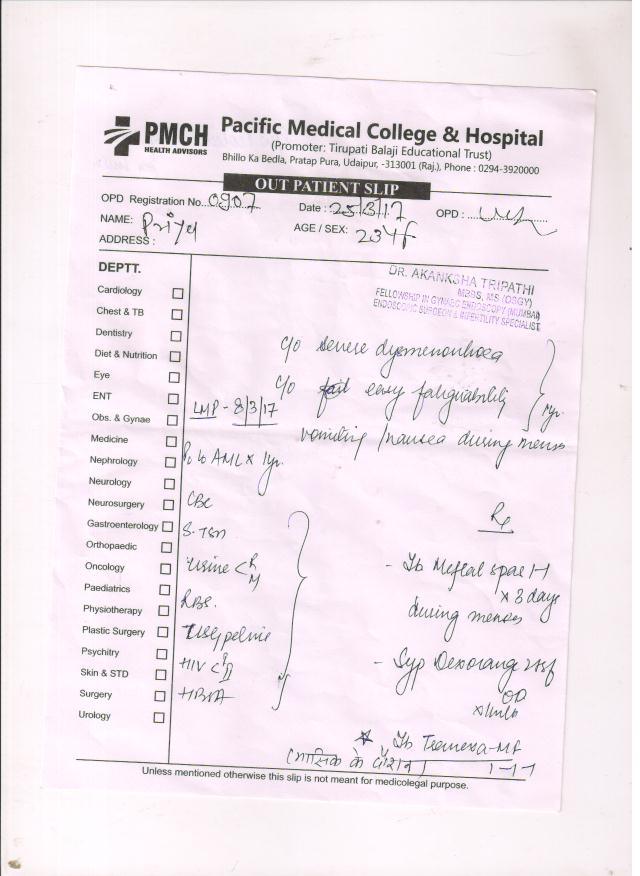 PMCH
HEALTH ADVISORS
Pacific Medical College & Hospital
(Promoter: Tirupati Balaji Educational Trust)
Bhillo Ka Bedla, Pratap Pura, Udaipur, -313001 (Raj.), Phone : 0294-3920000
OUT PATIENT SLIP
OPD Registration No. 0907 Date : 25/3/17 OPD :
NAME: Priya AGE / SEX: 23y/f
ADDRESS :
DEPTT.
DR. AKANKSHA TRIPATHI
MBBS, MS (OBGY)
FELLOWSHIP IN GYNAEC ENDOSCOPY (MUMBAI)
ENDOSCOPIC SURGEON & INFERTILITY SPECIALIST
Cardiology
Chest & TB
Dentistry
Diet & Nutrition
Eye
ENT
Obs. & Gynae
Medicine
Nephrology
Neurology
Neurosurgery
Gastroenterology
Orthopaedic
Oncology
Paediatrics
Physiotherapy
Plastic Surgery
Psychitry
Skin & STD
Surgery
Urology
c/o severe dysmenorrhoea
c/o easy fatiguability
LMP - 8/3/17
vomiting /nausea during menses
AML x 1yr.
CBC
S. TSH
Urine < R M
RBS.
USG pelvis
HIV
Rx
- Tb Meftal spas 1-1
x 3 days
during menses
- Syp Dexorange 2tsf
OD
Tb -MF
मासिक के दौरान 1-1-1
Unless mentioned otherwise this slip is not meant for medicolegal purpose.